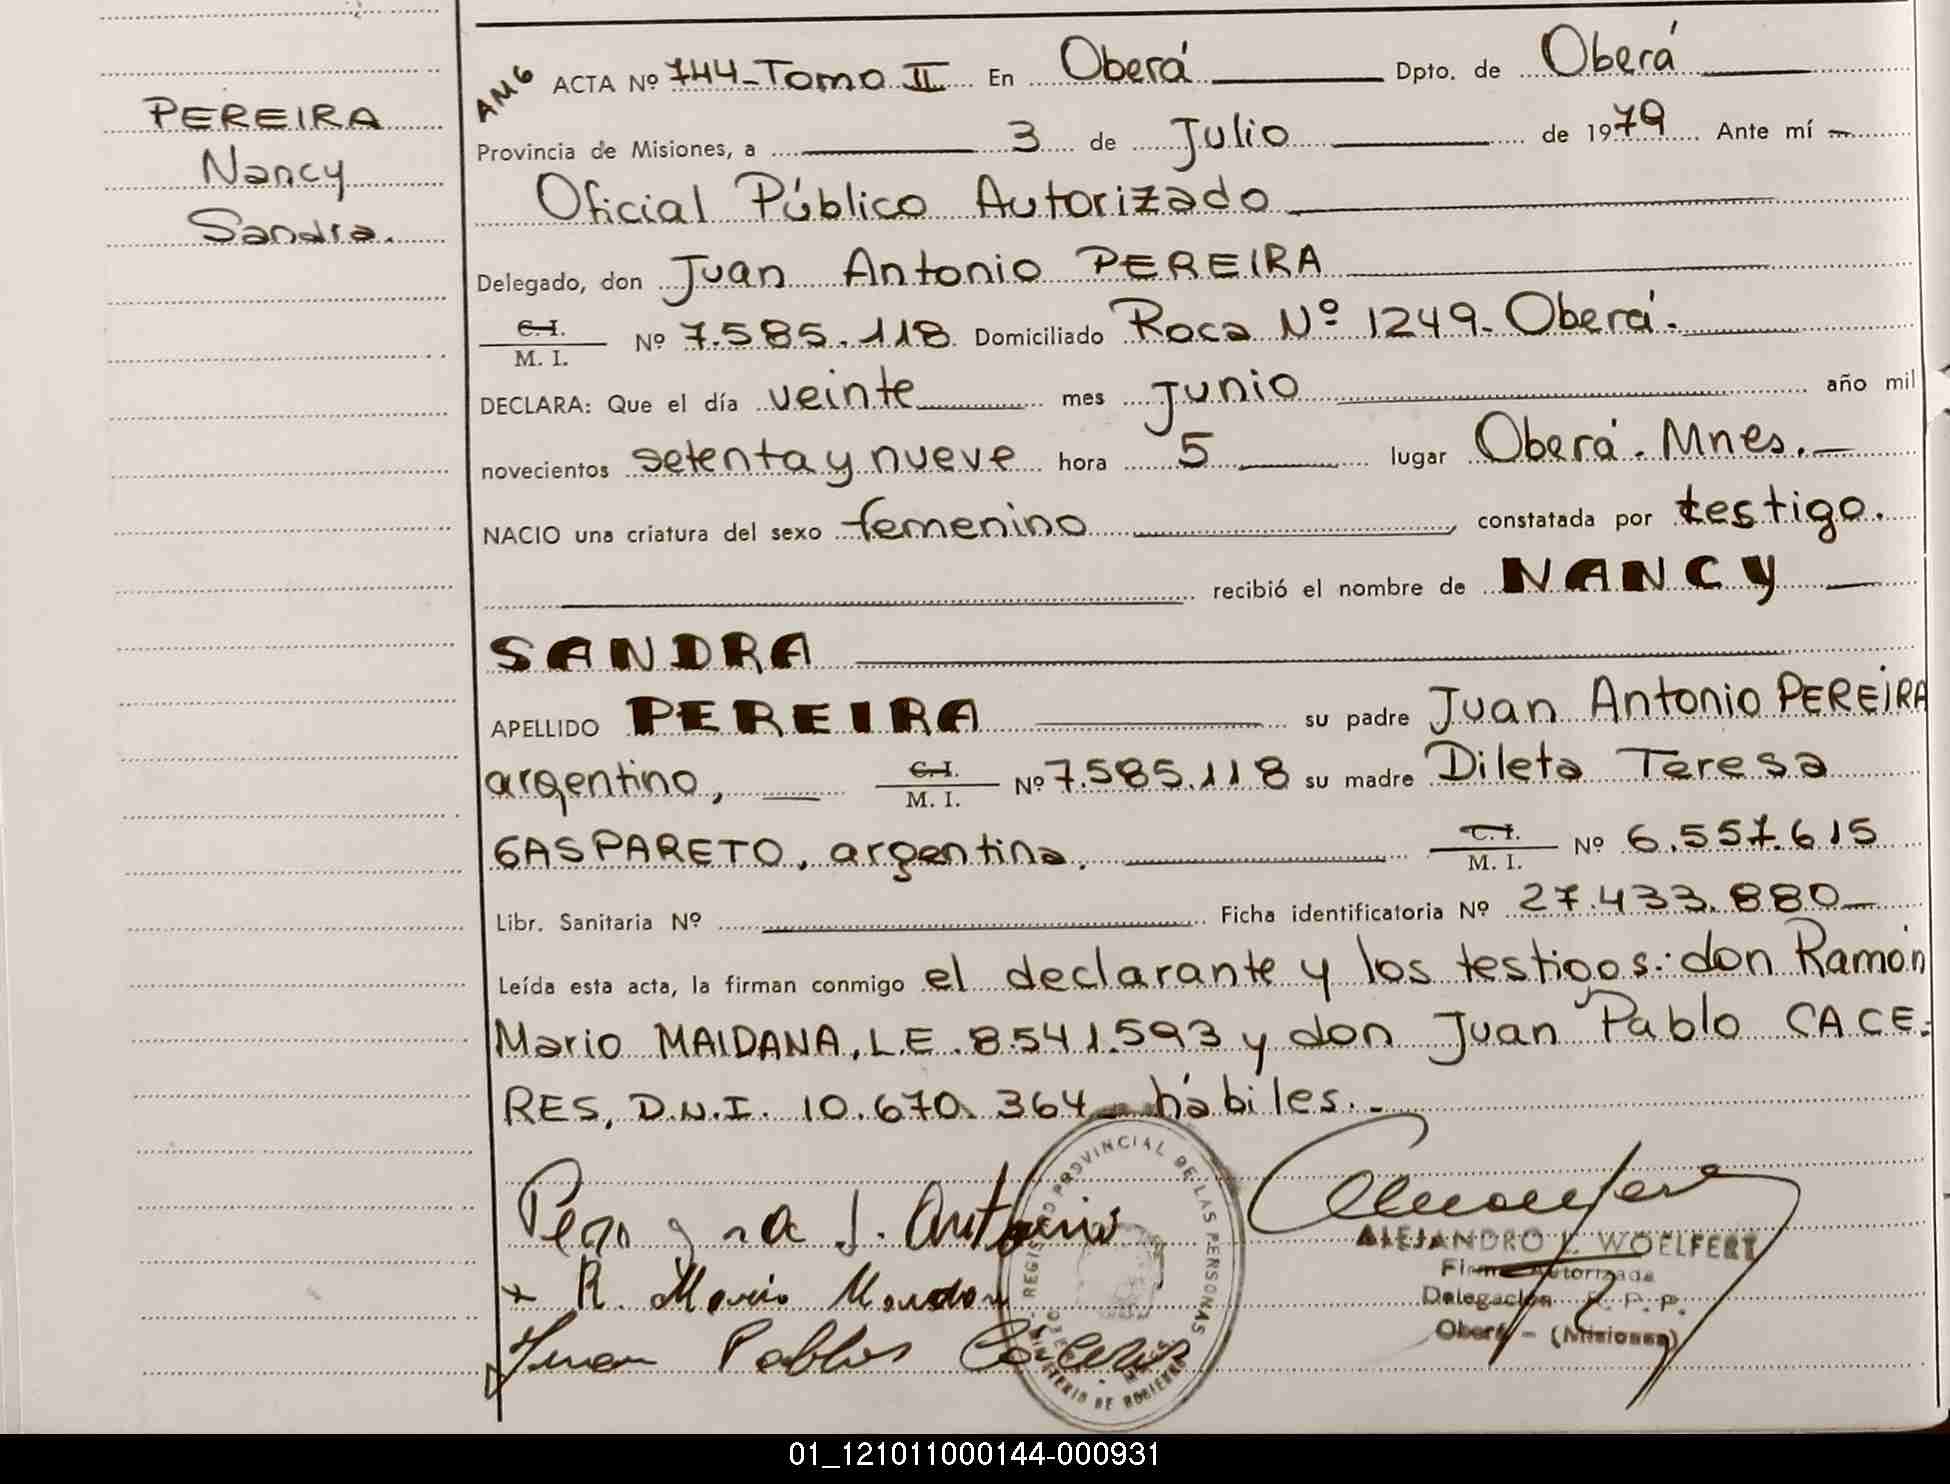 PEREIRA
Nancy
Sandra.
AMG ACTA Nº 744-Tomo II En Oberá Dpto. de Oberá
Provincia de Misiones, a 3 de Julio de 1979 Ante mí
Oficial Público Autorizado
Delegado, don Juan Antonio PEREIRA
C.I. / M. I. Nº 7.585.118 Domiciliado Roca Nº 1249. Oberá.
DECLARA: Que el día veinte mes junio año mil
novecientos setenta y nueve hora 5 lugar Oberá. Mnes.
NACIO una criatura del sexo femenino, constatada por testigo.
recibió el nombre de NANCY
SANDRA
APELLIDO PEREIRA su padre Juan Antonio PEREIRA
argentino, C.I. / M. I. Nº 7.585.118 su madre Dileta Teresa
GASPARETO, argentina. C.I. / M. I. Nº 6.557.615
Libr. Sanitaria Nº Ficha identificatoria Nº 27.433.880
Leída esta acta, la firman conmigo el declarante y los testigos: don Ramón
Mario MAIDANA, L.E. 8.541.593 y don Juan Pablo CACE-
RES, D.N.I. 10.670.364 hábiles.
REGISTRO PROVINCIAL DE LAS PERSONAS
MINISTERIO DE GOBIERNO
J. Antonio
R. Mario
Juan Pablo
ALEJANDRO L. WOELFERT
Firma Autorizada
Delegación R. P. P.
Oberá - (Misiones)
01_121011000144-000931